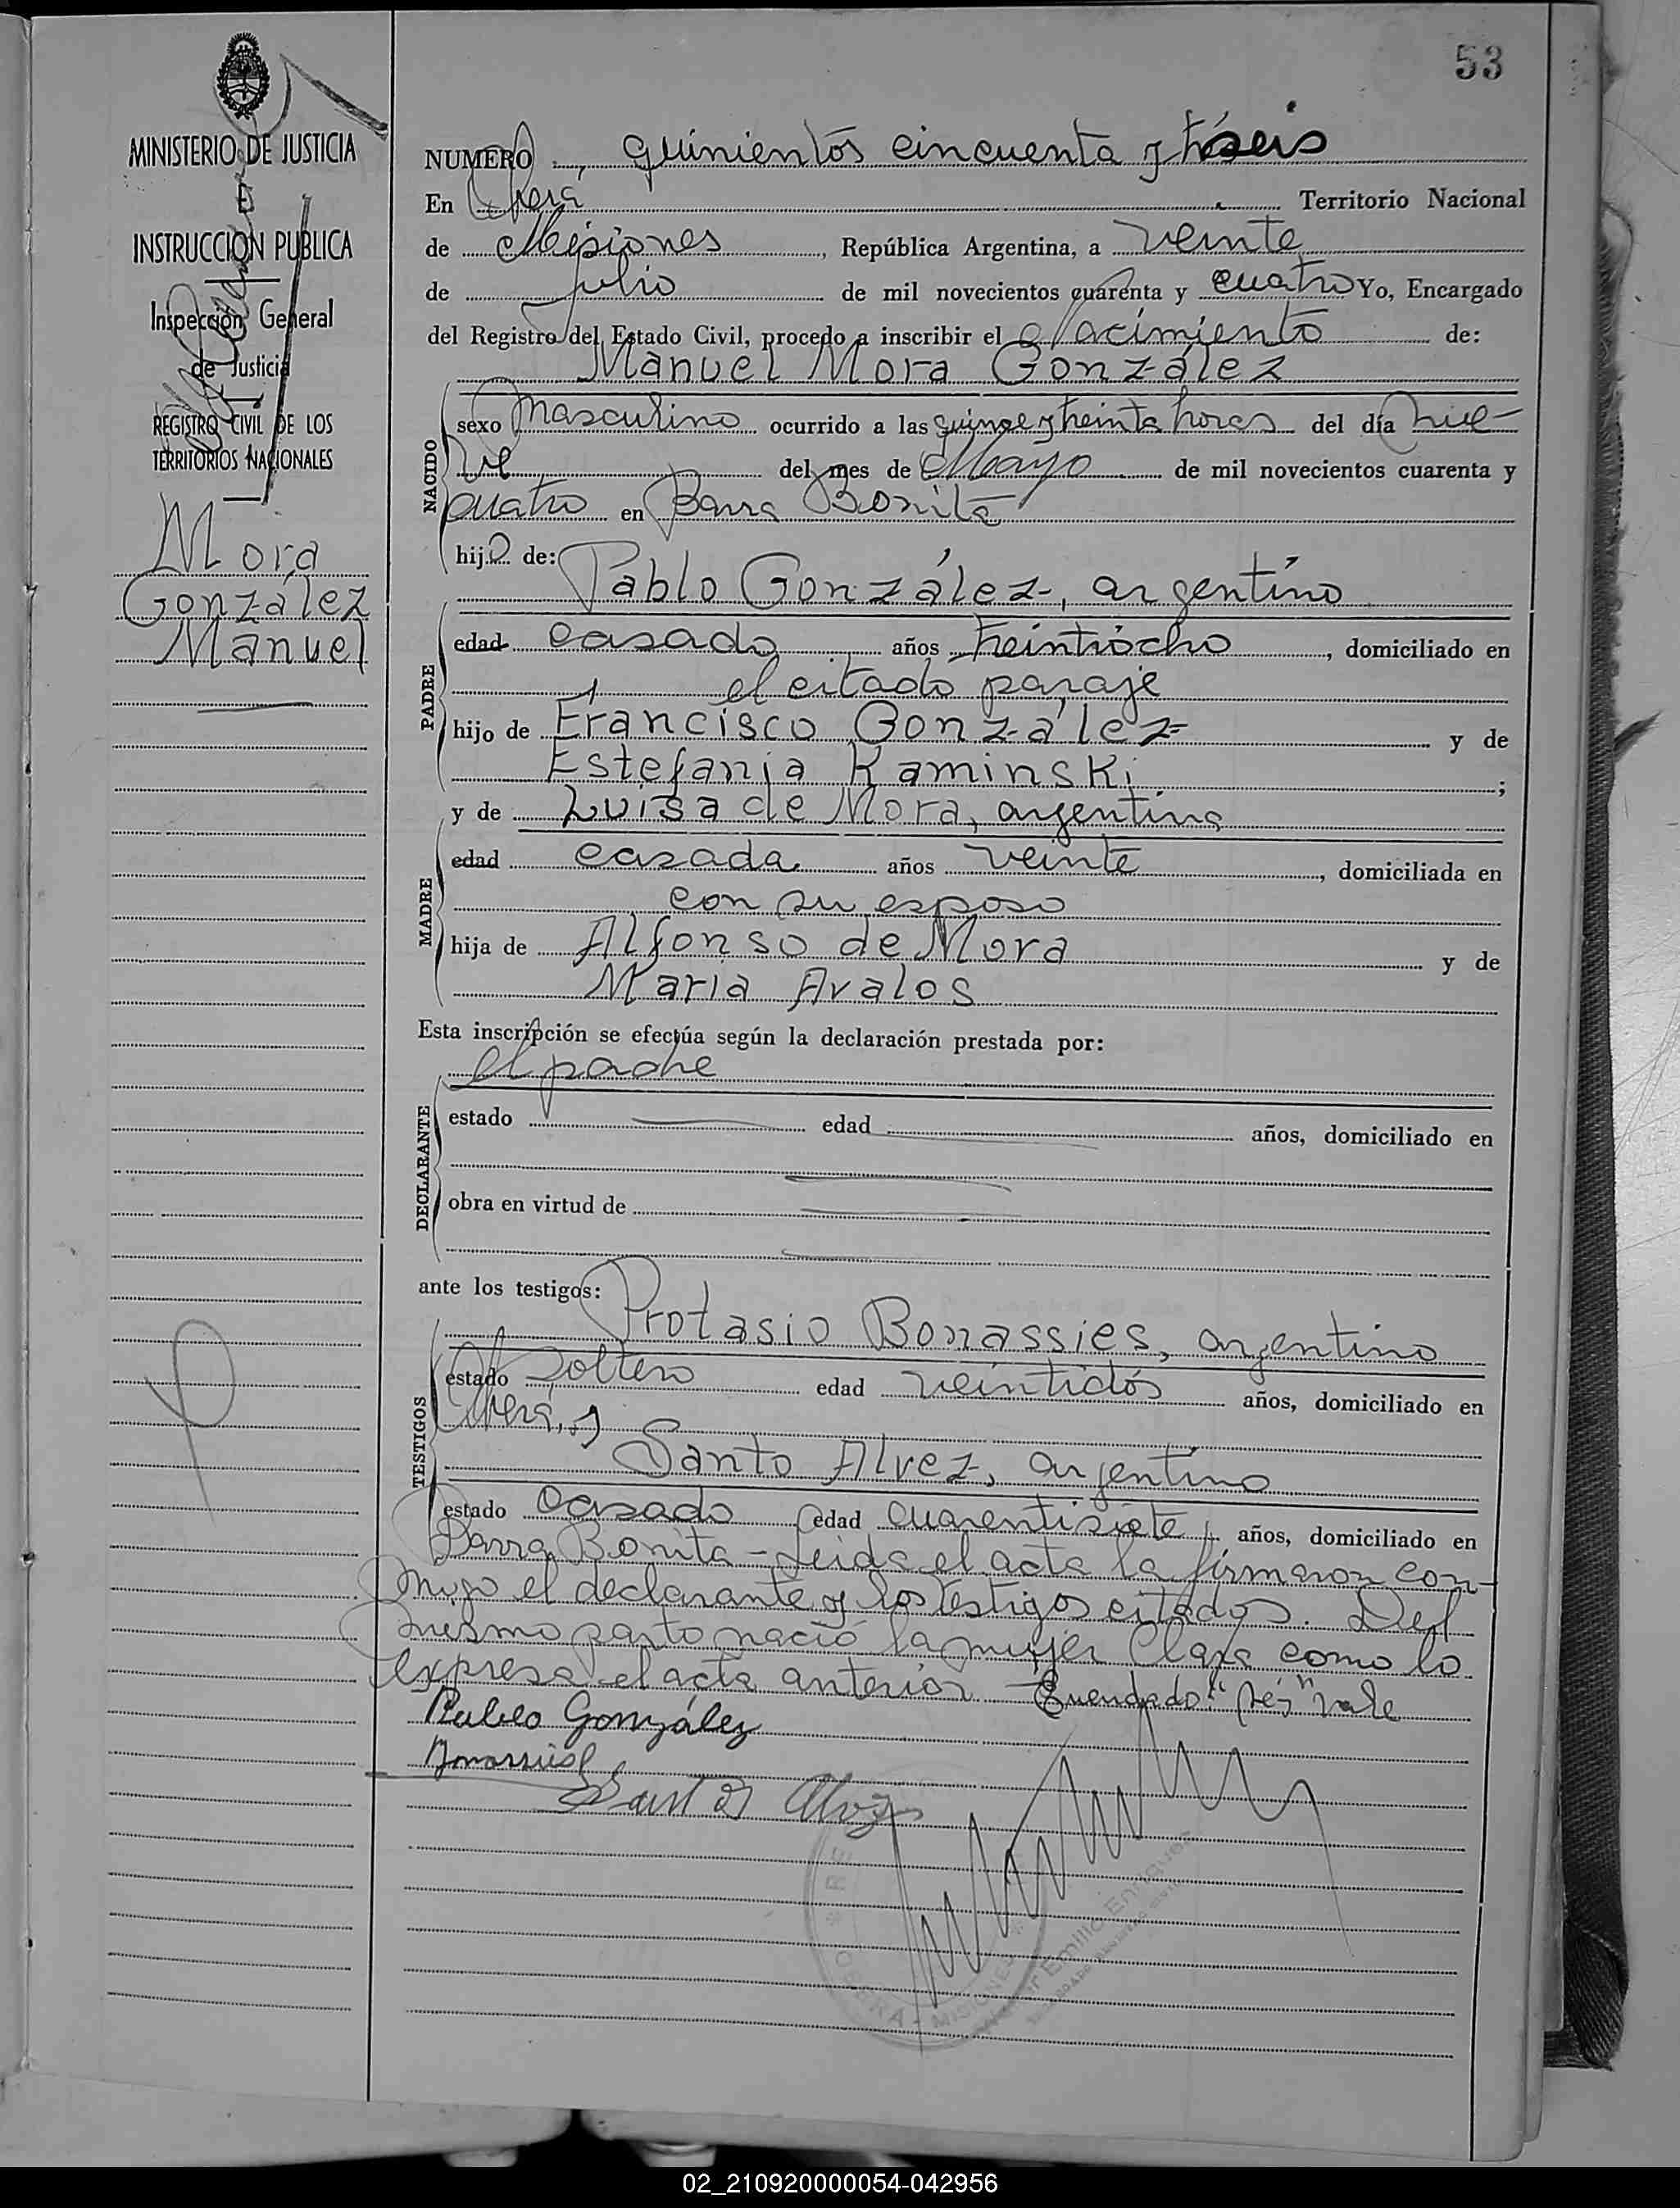 53
MINISTERIO DE JUSTICIA
E
INSTRUCCION PUBLICA
Inspección General
de Justicia
REGISTRO CIVIL DE LOS
TERRITORIOS NACIONALES
Mora
González
Manuel
NUMERO quinientos cincuenta y seis
En Oberá Territorio Nacional
de Misiones, República Argentina, a veinte
de julio de mil novecientos cuarenta y cuatro Yo, Encargado
del Registro del Estado Civil, procedo a inscribir el Nacimiento de:
Manuel Mora González
NACIDO
sexo Masculino ocurrido a las quince y treinta horas del día nue-
ve del mes de Mayo de mil novecientos cuarenta y
cuatro en Barra Bonita
hijo de:
Pablo González, argentino
PADRE
edad casado años treintiocho, domiciliado en
el citado paraje
hijo de Francisco González y de
Estefania Kaminski ;
y de Luisa de Mora, argentina
MADRE
edad casada años veinte, domiciliada en
con su esposo
hija de Alfonso de Mora y de
Maria Avalos
Esta inscripción se efectúa según la declaración prestada por:
el padre
DECLARANTE
estado edad años, domiciliado en
obra en virtud de
ante los testigos:
Protasio Bonassies, argentino
TESTIGOS
estado soltero edad veintidós años, domiciliado en
Oberá, y
Santo Alvez, argentino
estado casado edad cuarentisiete años, domiciliado en
Barra Bonita - Leida el acta la firmaron con-
migo el declarante y los testigos citados. Del
mismo parto nació la mujer Clara como lo
expresa el acta anterior - Enmendado: vale
Pablo González
Santo Alvez
OBERA - MISIONES
Emilio Enrique
02_210920000054-042956